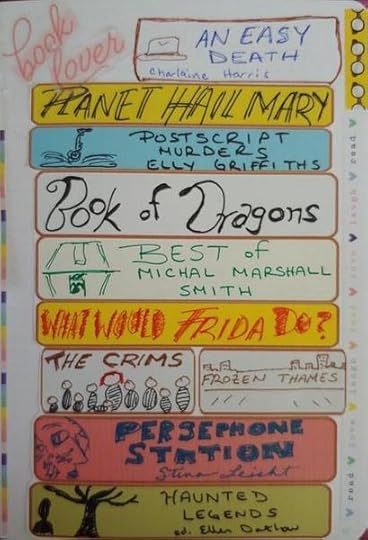 book
lover
AN EASY
DEATH
Charlaine Harris
PLANET HAIL MARY
POSTSCRIPT
MURDERS
ELLY GRIFFITHS
Book of Dragons
BEST of
MICHAL MARSHALL
SMITH
WHAT WOULD FRIDA DO?
THE CRIMS
FROZEN THAMES
PERSEPHONE
STATION
Stina Leicht
HAUNTED
LEGENDS
ed. Ellen Datlow
read love laugh read love laugh read